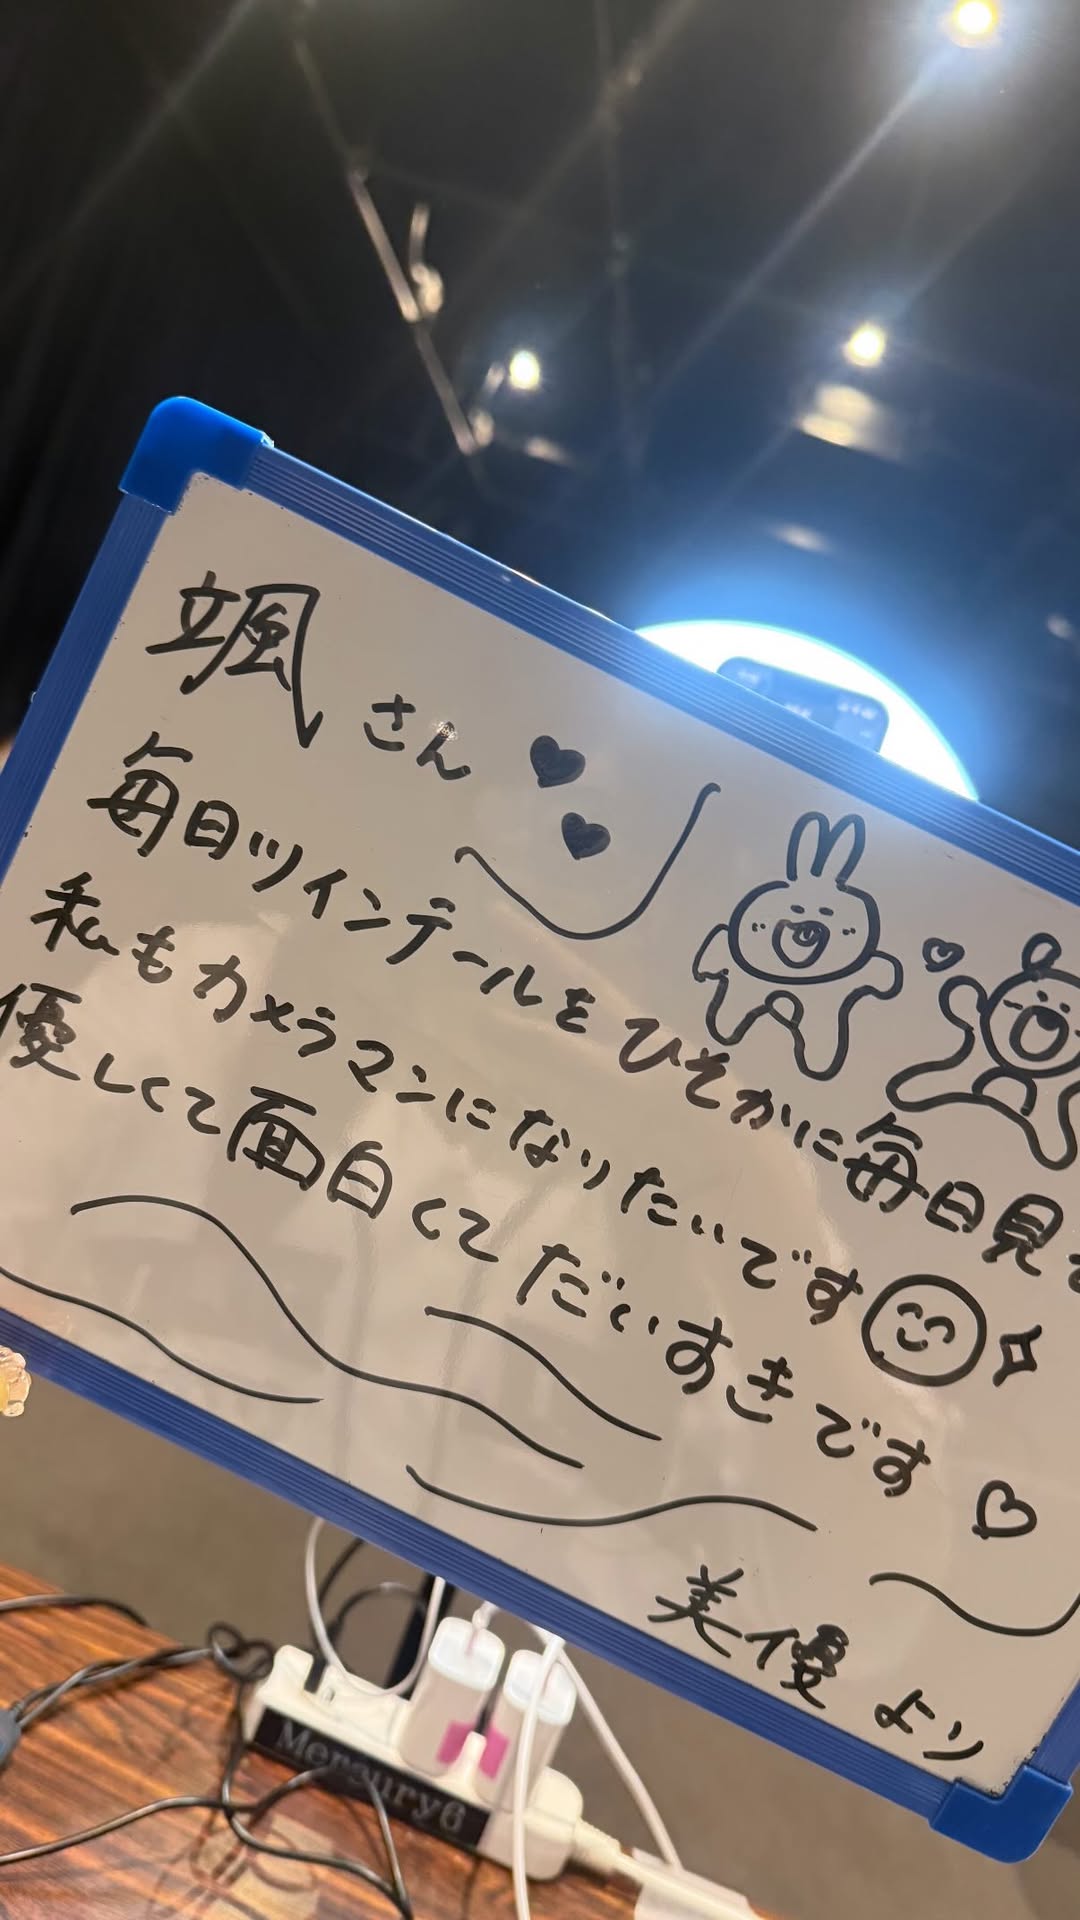 颯さん
毎日ツインテールをひそかに毎日見
私もカメラマンになりたいです
優しくて面白くてだいすきです
美優より
Mercury6